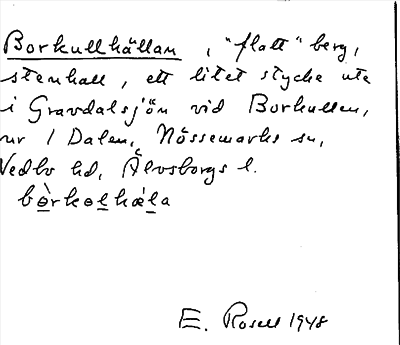 Borkullhällan, "flatt" berg,
stenhall, ett litet stycke ute
i Gravdalsjön vid Borkullen,
nr 1 Dalen, Nössemarks sn,
Vedbo hd, Älvsborgs l.
bòrkolhæ̀la
E. Rosell 1948